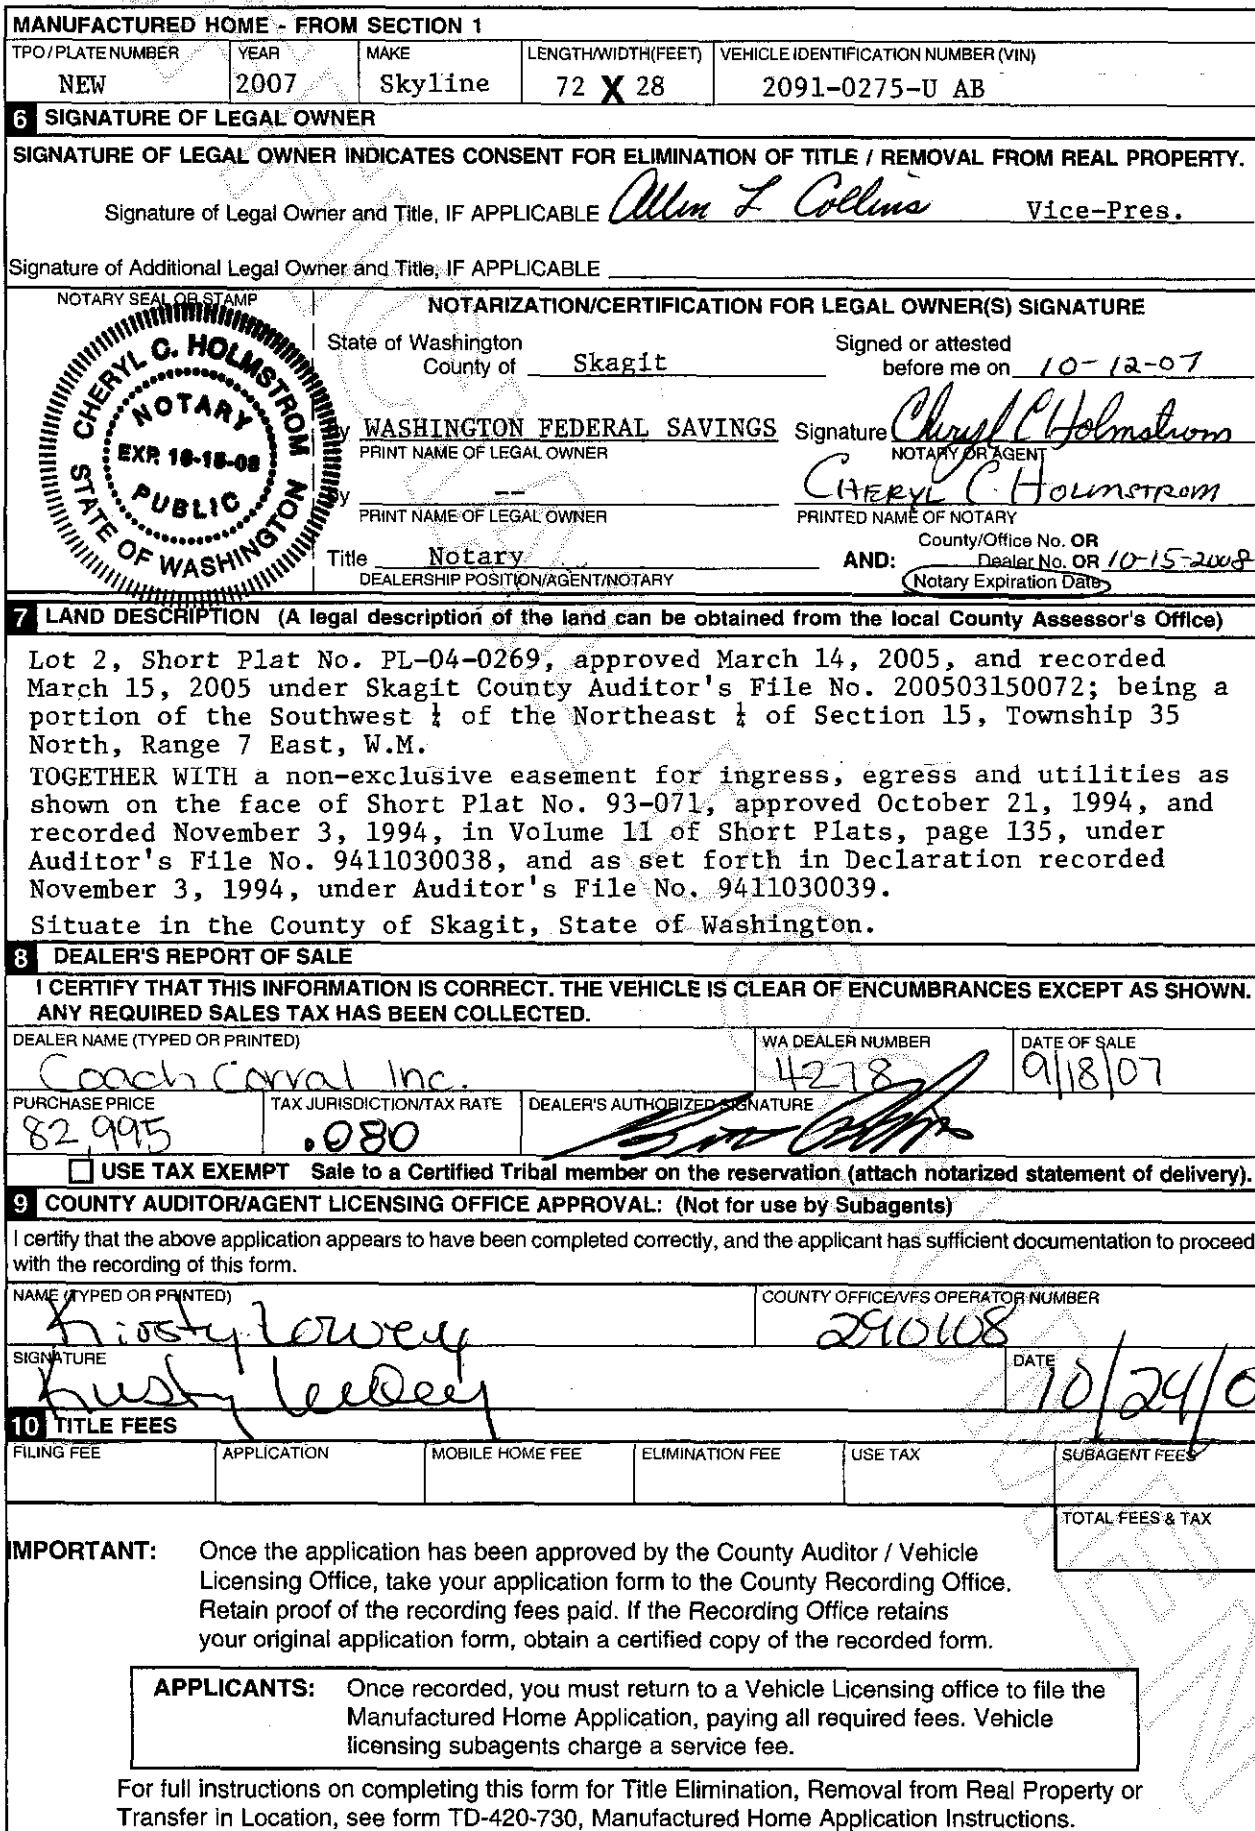 MANUFACTURED HOME - FROM SECTION 1
TPO / PLATE NUMBER YEAR MAKE LENGTH/WIDTH(FEET) VEHICLE IDENTIFICATION NUMBER (VIN)
NEW 2007 Skyline 72 X 28 2091-0275-U AB
6 SIGNATURE OF LEGAL OWNER
SIGNATURE OF LEGAL OWNER INDICATES CONSENT FOR ELIMINATION OF TITLE / REMOVAL FROM REAL PROPERTY.
Signature of Legal Owner and Title, IF APPLICABLE Allen L Collins Vice-Pres.
Signature of Additional Legal Owner and Title, IF APPLICABLE
NOTARY SEAL OR STAMP
CHERYL C. HOLMSTROM
NOTARY
PUBLIC
STATE OF WASHINGTON
NOTARIZATION/CERTIFICATION FOR LEGAL OWNER(S) SIGNATURE
State of Washington Signed or attested
County of Skagit before me on 10-12-07
By WASHINGTON FEDERAL SAVINGS Signature Cheryl C Holmstrom
PRINT NAME OF LEGAL OWNER NOTARY OR AGENT
By -- CHERYL C. HOLMSTROM
PRINT NAME OF LEGAL OWNER PRINTED NAME OF NOTARY
County/Office No. OR
Title Notary AND: Dealer No. OR 10-15-2008
DEALERSHIP POSITION/AGENT/NOTARY Notary Expiration Date
7 LAND DESCRIPTION (A legal description of the land can be obtained from the local County Assessor's Office)
Lot 2, Short Plat No. PL-04-0269, approved March 14, 2005, and recorded
March 15, 2005 under Skagit County Auditor's File No. 200503150072; being a
portion of the Southwest ¼ of the Northeast ¼ of Section 15, Township 35
North, Range 7 East, W.M.
TOGETHER WITH a non-exclusive easement for ingress, egress and utilities as
shown on the face of Short Plat No. 93-071, approved October 21, 1994, and
recorded November 3, 1994, in Volume 11 of Short Plats, page 135, under
Auditor's File No. 9411030038, and as set forth in Declaration recorded
November 3, 1994, under Auditor's File No. 9411030039.
Situate in the County of Skagit, State of Washington.
8 DEALER'S REPORT OF SALE
I CERTIFY THAT THIS INFORMATION IS CORRECT. THE VEHICLE IS CLEAR OF ENCUMBRANCES EXCEPT AS SHOWN.
ANY REQUIRED SALES TAX HAS BEEN COLLECTED.
DEALER NAME (TYPED OR PRINTED) WA DEALER NUMBER DATE OF SALE
Coach Corral Inc. 4278 9/18/07
PURCHASE PRICE TAX JURISDICTION/TAX RATE DEALER'S AUTHORIZED SIGNATURE
82,995 .080
USE TAX EXEMPT Sale to a Certified Tribal member on the reservation (attach notarized statement of delivery).
9 COUNTY AUDITOR/AGENT LICENSING OFFICE APPROVAL: (Not for use by Subagents)
I certify that the above application appears to have been completed correctly, and the applicant has sufficient documentation to proceed
with the recording of this form.
NAME (TYPED OR PRINTED) COUNTY OFFICE/VFS OPERATOR NUMBER
SIGNATURE DATE
10/24/0
10 TITLE FEES
FILING FEE APPLICATION MOBILE HOME FEE ELIMINATION FEE USE TAX SUBAGENT FEES
TOTAL FEES & TAX
IMPORTANT: Once the application has been approved by the County Auditor / Vehicle
Licensing Office, take your application form to the County Recording Office.
Retain proof of the recording fees paid. If the Recording Office retains
your original application form, obtain a certified copy of the recorded form.
APPLICANTS: Once recorded, you must return to a Vehicle Licensing office to file the
Manufactured Home Application, paying all required fees. Vehicle
licensing subagents charge a service fee.
For full instructions on completing this form for Title Elimination, Removal from Real Property or
Transfer in Location, see form TD-420-730, Manufactured Home Application Instructions.